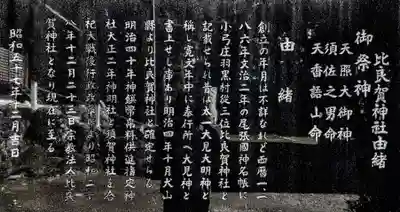 比良賀神社由緒
御祭神
天照大御神
須佐之男命
天香語山命
由緒
創立の年月は不詳なれど西暦一一
八六年文治二年の尾張國神名帳に
小弓庄羽黒村従三位比良賀神社と
記載せられ昔は太一大見大明神と
称し寛文年中に奉行所へ大見神と
書上せし事あり明治四年十月犬山
縣より比良賀神社と確定せらる
明治四十年神饌幣帛料供進指定神
社大正二年神明社須賀神社を合
祀大戦後行政
八年十二月二十三日宗教法人比良
賀神社となり現在に至る
昭和五十 年二月吉日